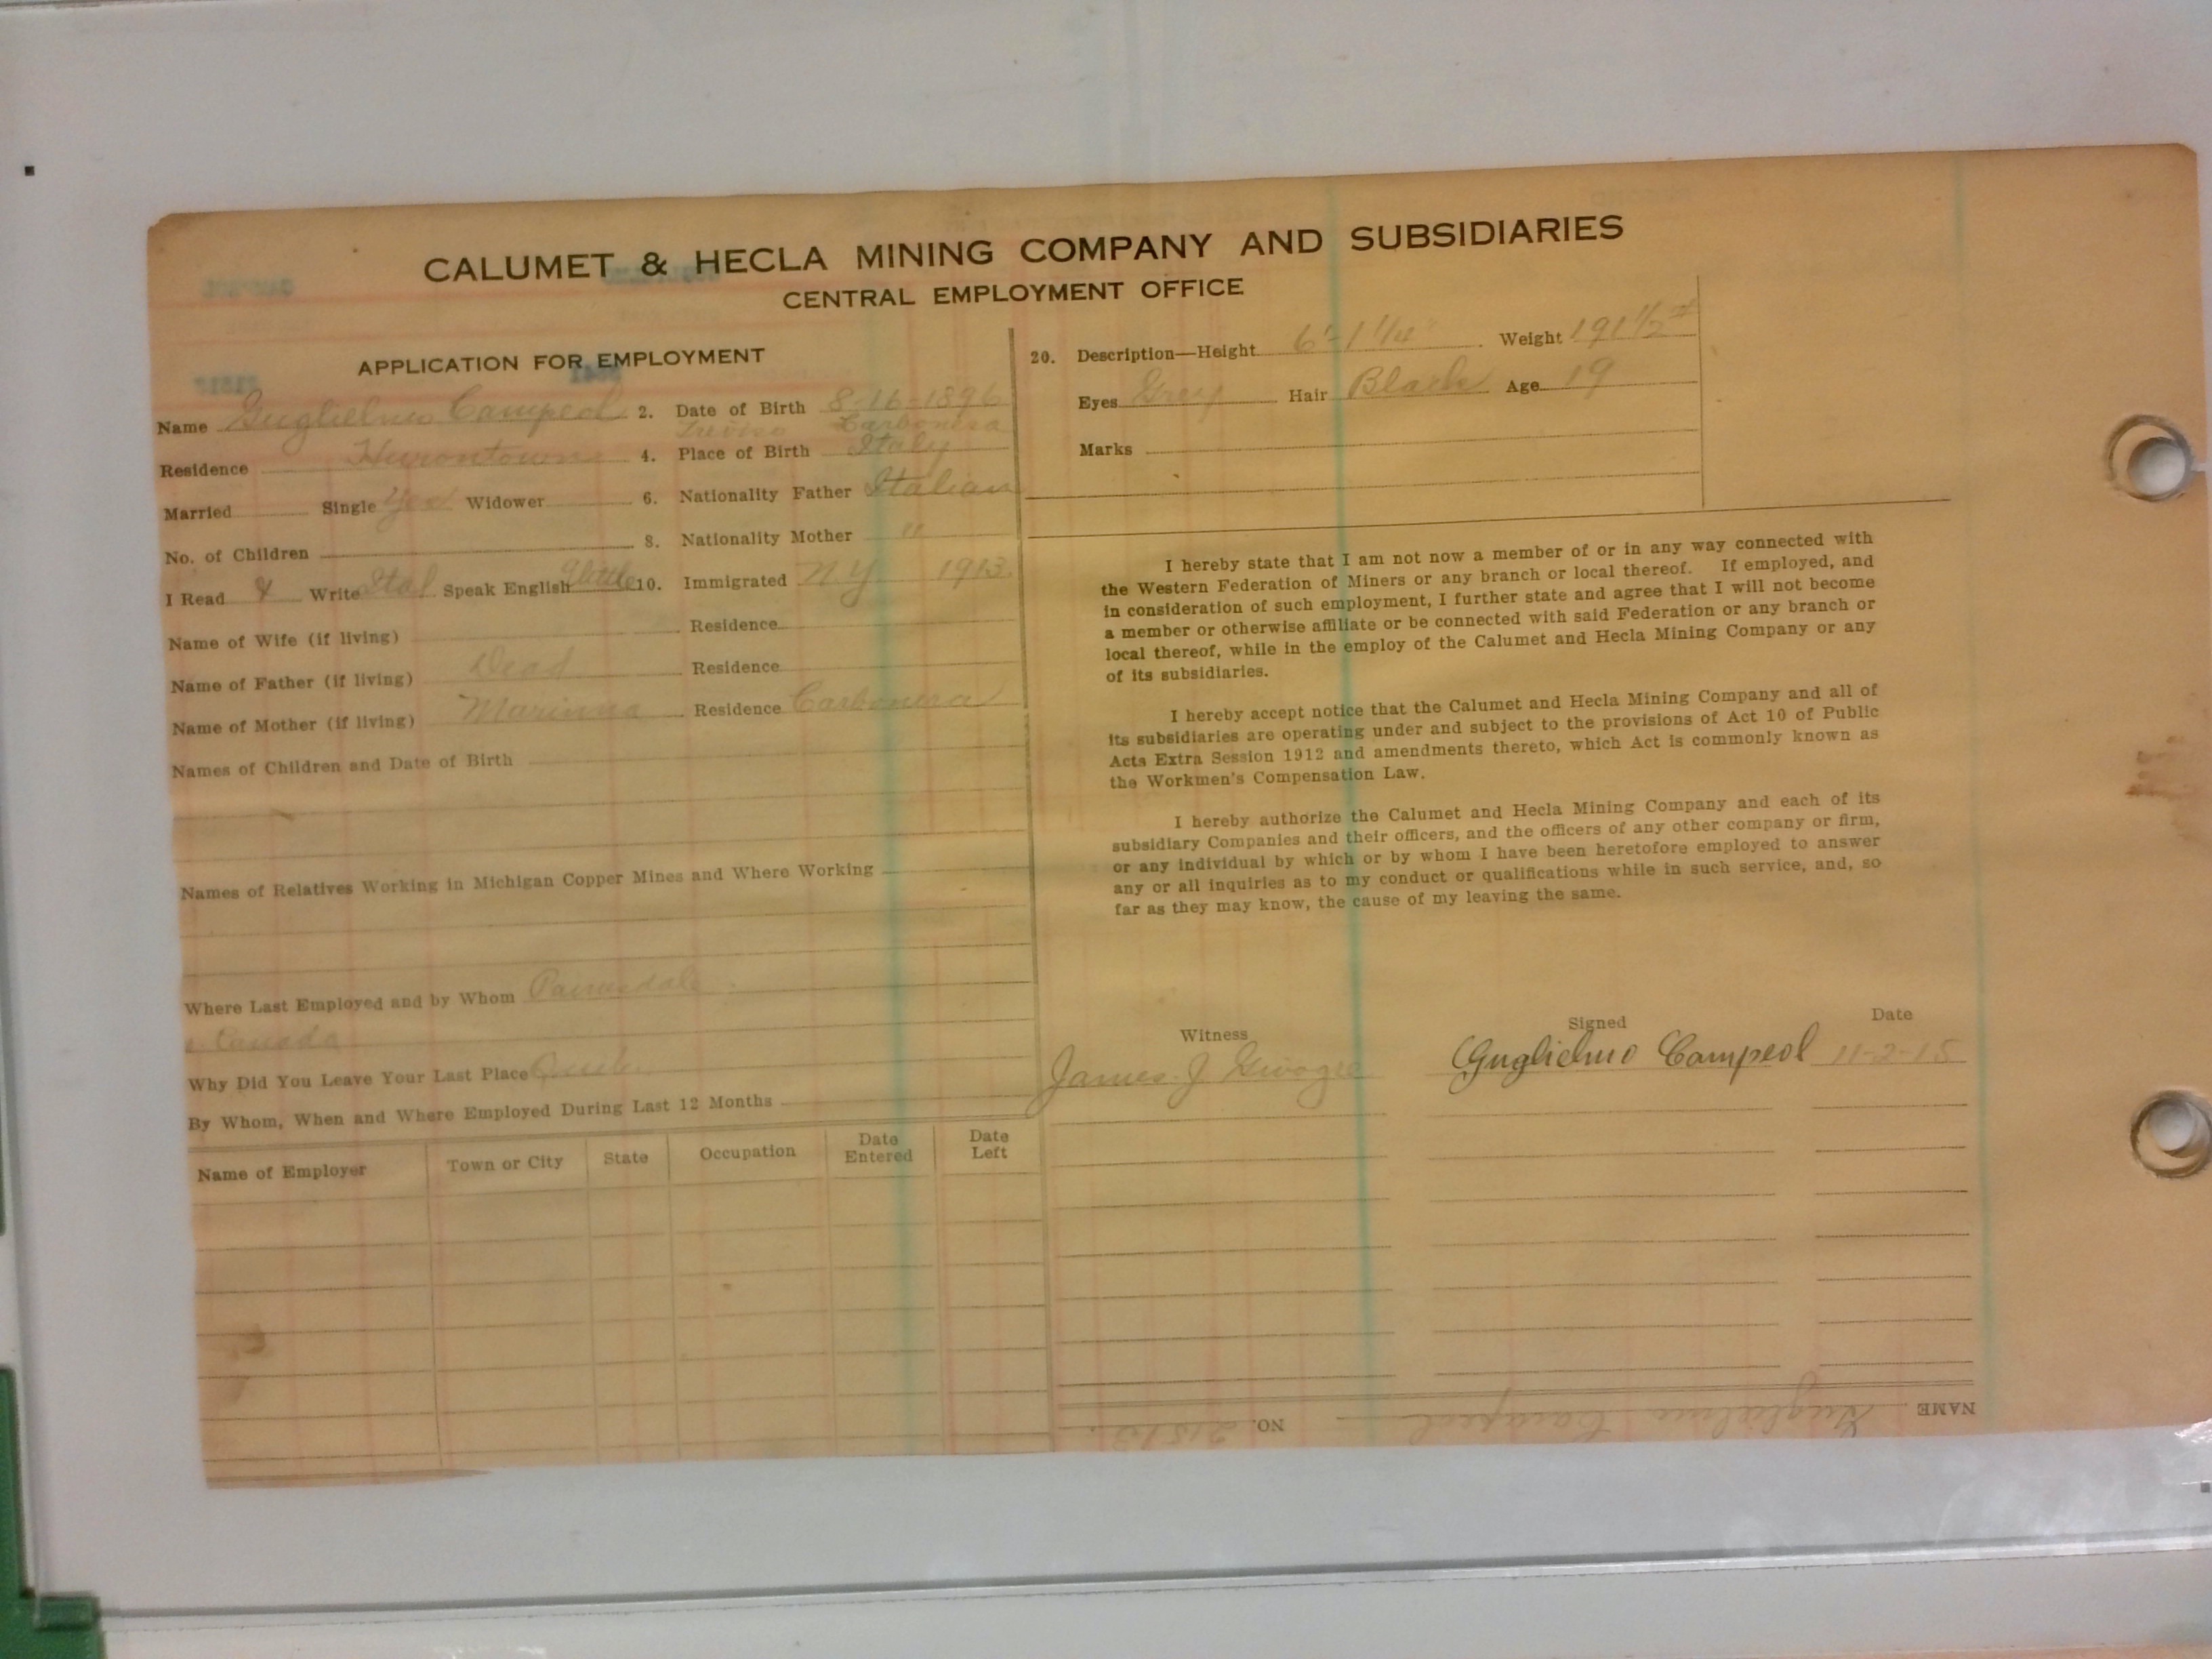 CALUMET & HECLA MINING COMPANY AND SUBSIDIARIES
CENTRAL EMPLOYMENT OFFICE
APPLICATION FOR EMPLOYMENT
Name Guglielmo Campeol 2. Date of Birth 8-16-1896
Treviso Carbonera
Residence Hurontown 4. Place of Birth Italy
Married Single Yes Widower 6. Nationality Father Italian
No. of Children 8. Nationality Mother "
I Read & Write Ital Speak English little 10. Immigrated N.Y. 1913.
Name of Wife (if living) Residence
Name of Father (if living) Dead Residence
Name of Mother (if living) Residence Carbonera
Names of Children and Date of Birth
Names of Relatives Working in Michigan Copper Mines and Where Working
Where Last Employed and by Whom Painesdale
Canada
Why Did You Leave Your Last Place
By Whom, When and Where Employed During Last 12 Months
Name of Employer Town or City State Occupation Date Entered Date Left
20. Description—Height 6'-1 1/4" Weight 191 1/2 #
Eyes Grey Hair Black Age 19
Marks
I hereby state that I am not now a member of or in any way connected with
the Western Federation of Miners or any branch or local thereof. If employed, and
in consideration of such employment, I further state and agree that I will not become
a member or otherwise affiliate or be connected with said Federation or any branch or
local thereof, while in the employ of the Calumet and Hecla Mining Company or any
of its subsidiaries.
I hereby accept notice that the Calumet and Hecla Mining Company and all of
its subsidiaries are operating under and subject to the provisions of Act 10 of Public
Acts Extra Session 1912 and amendments thereto, which Act is commonly known as
the Workmen's Compensation Law.
I hereby authorize the Calumet and Hecla Mining Company and each of its
subsidiary Companies and their officers, and the officers of any other company or firm,
or any individual by which or by whom I have been heretofore employed to answer
any or all inquiries as to my conduct or qualifications while in such service, and, so
far as they may know, the cause of my leaving the same.
Witness Signed Date
James J Guglielmo Campeol 11-2-15
NAME Guglielmo Campeol NO. 21513.